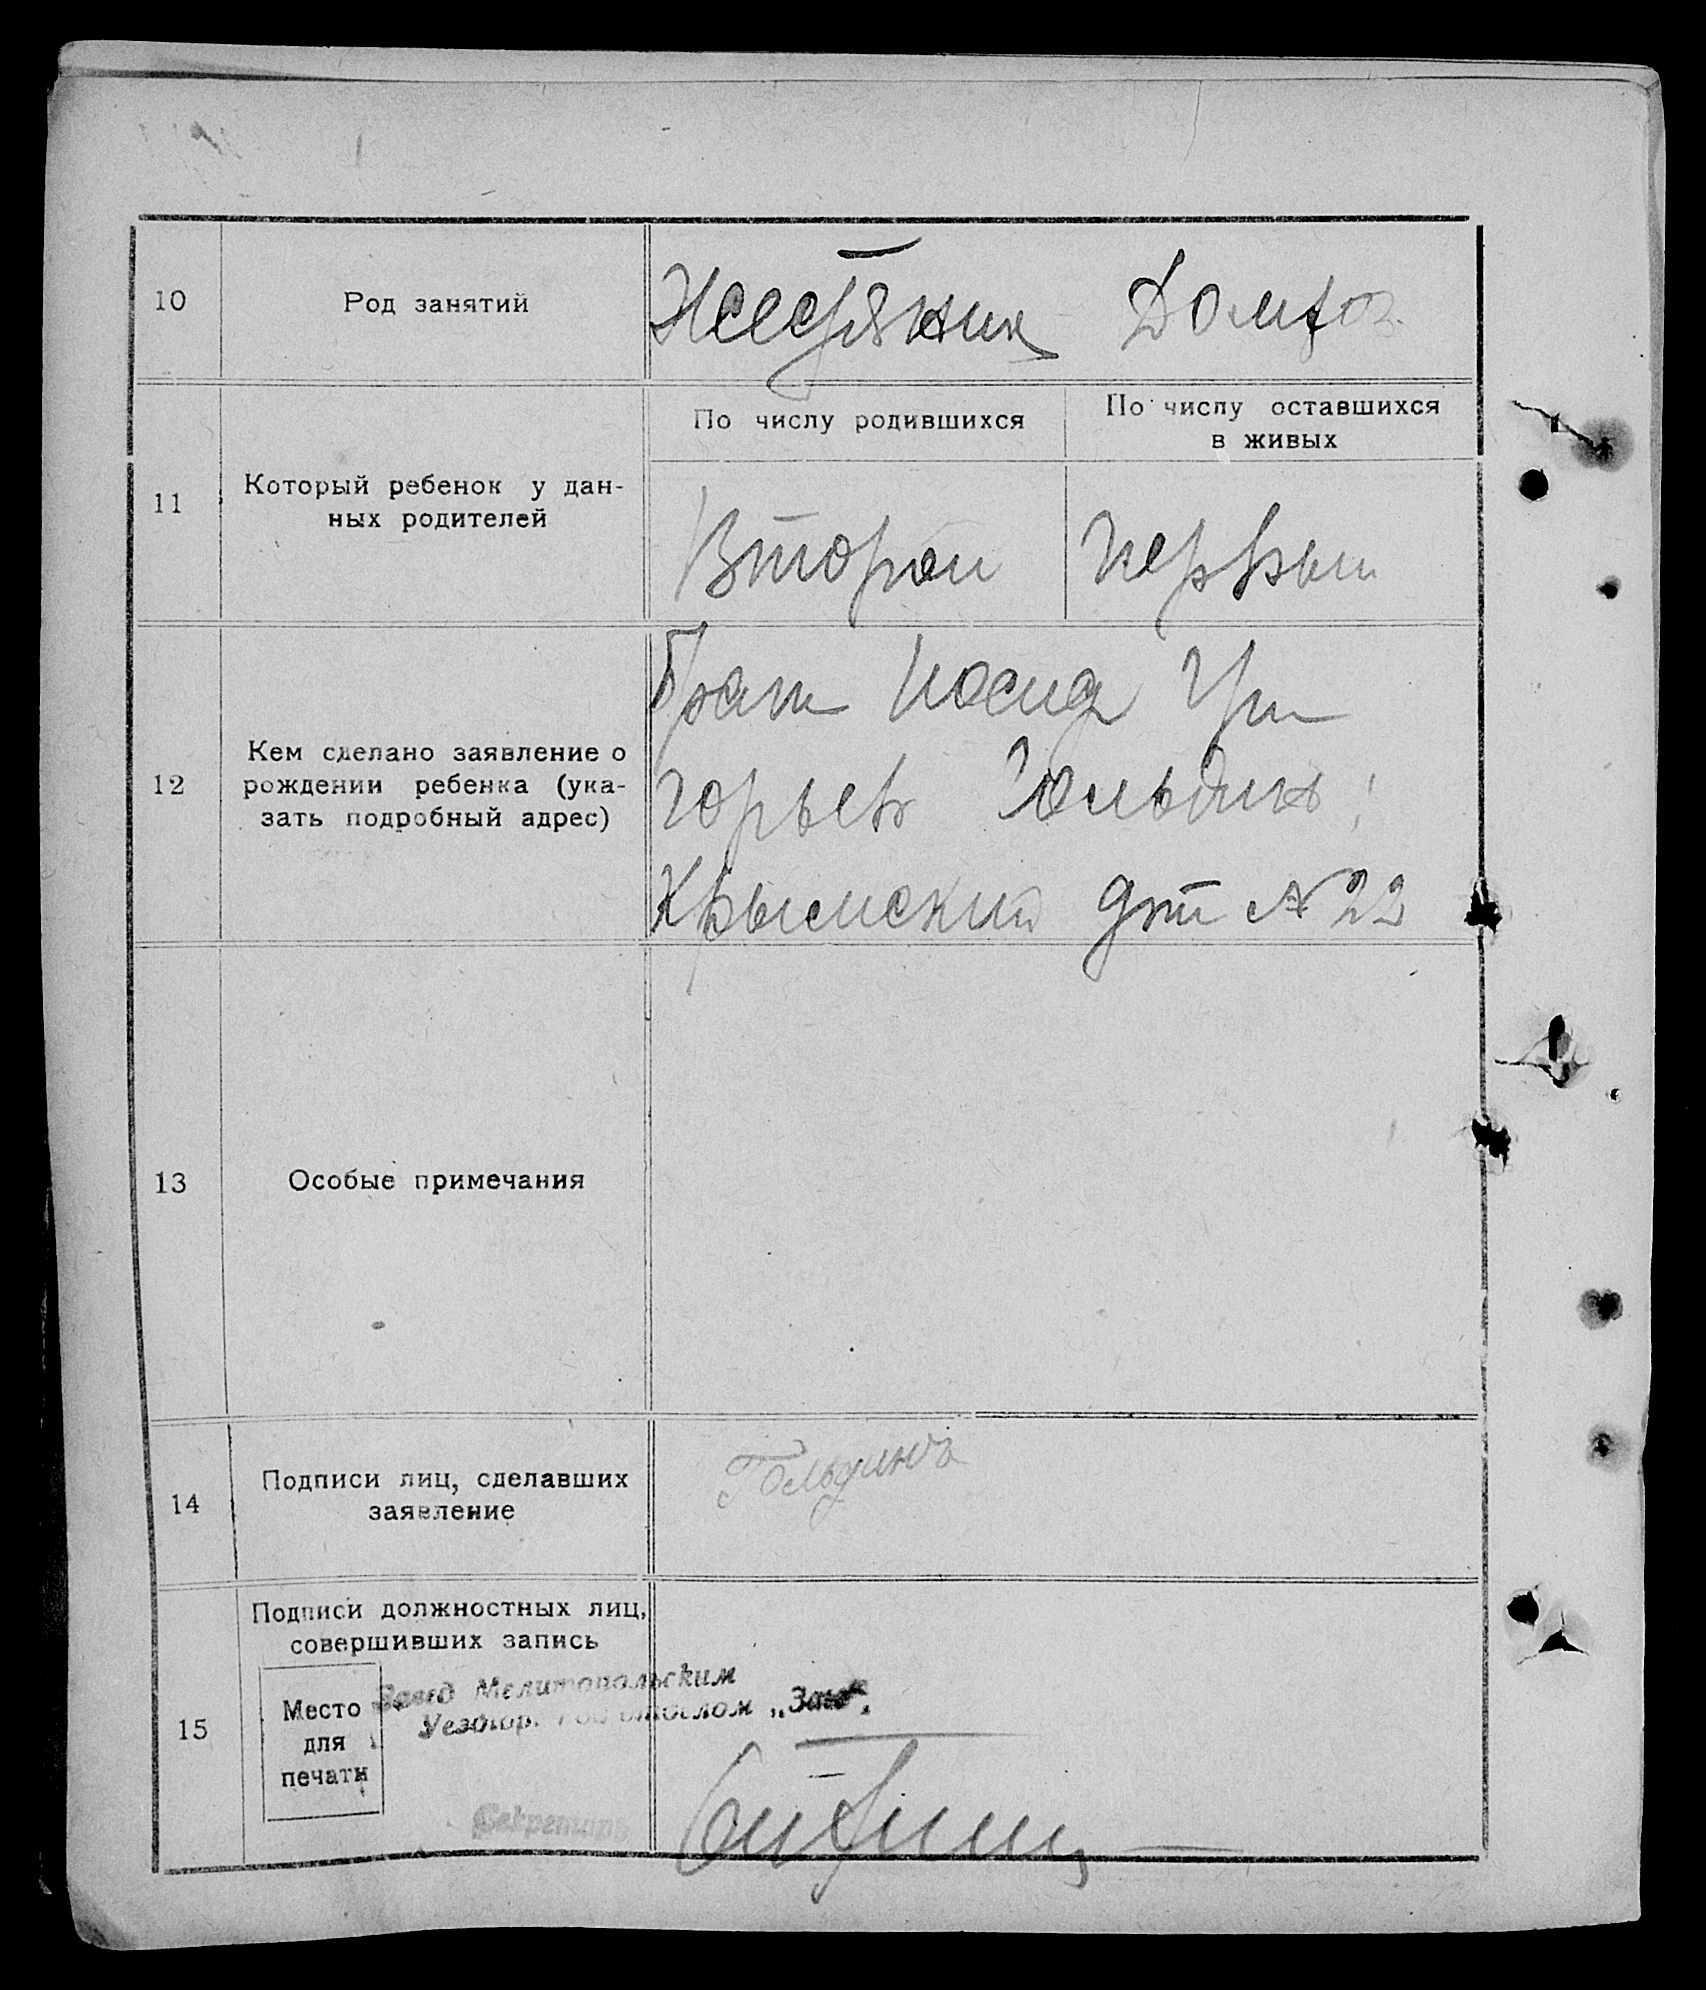 10
Род занятий
Жестяник Домхоз.
11
Который ребенок у дан-
ных родителей
По числу родившихся
По числу оставшихся
в живых
Второй
Первый
12
Кем сделано заявление о
рождении ребенка (ука-
зать подробный адрес)
Брат Иосиф Гри
горьев Гольдин
Крымский № 22
13
Особые примечания
14
Подписи лиц, сделавших
заявление
Гольдинъ
15
Подписи должностных лиц,
совершивших запись
Место
для
печати
Завед Мелитопольским
„Загс“.
Секретарь